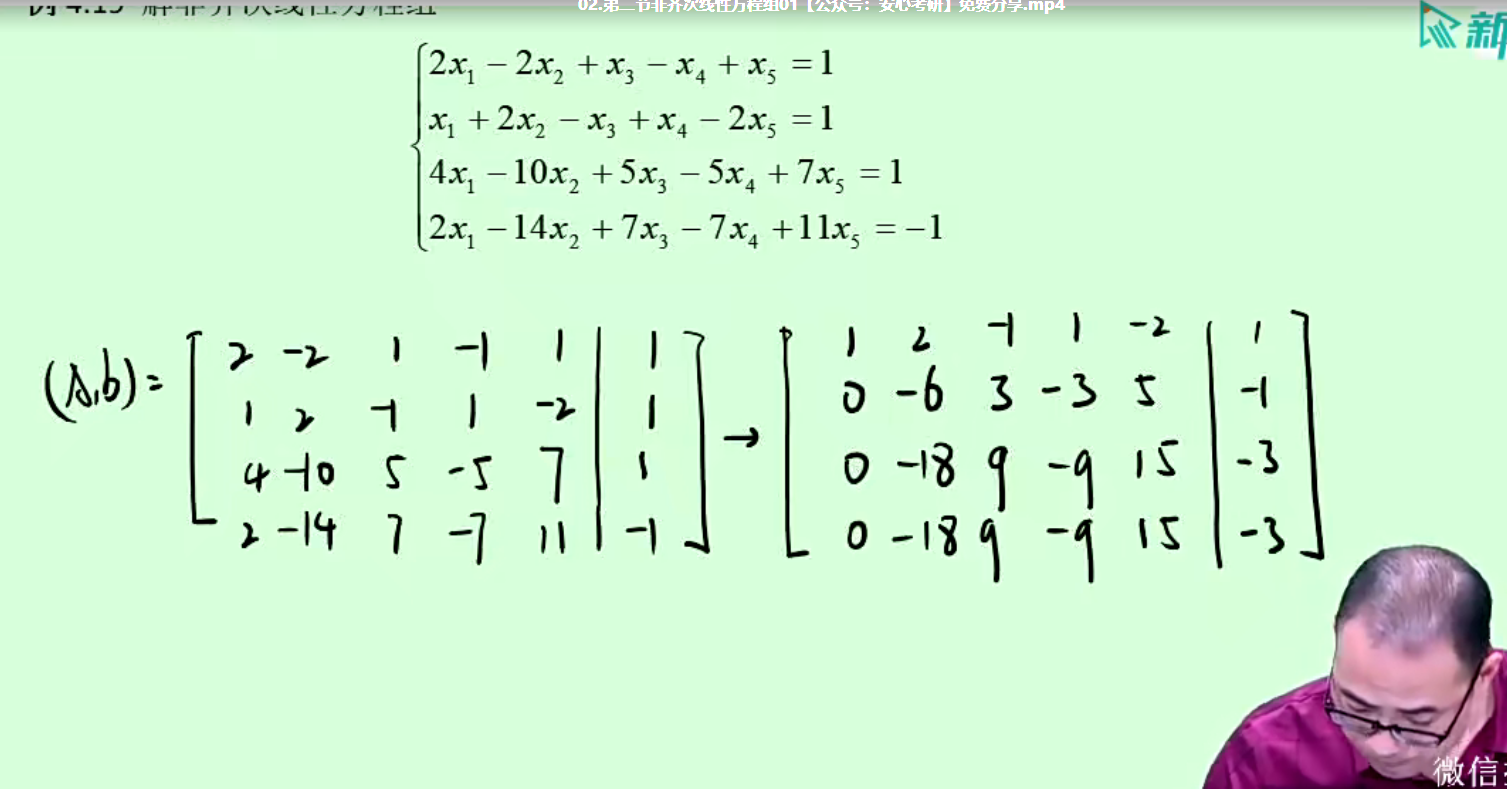 02.第二节非齐次线性方程组01【公众号：安心考研】免费分享.mp4
例 4.15 解非齐次线性方程组
新
2x₁ − 2x₂ + x₃ − x₄ + x₅ = 1
x₁ + 2x₂ − x₃ + x₄ − 2x₅ = 1
4x₁ − 10x₂ + 5x₃ − 5x₄ + 7x₅ = 1
2x₁ − 14x₂ + 7x₃ − 7x₄ + 11x₅ = −1
(A,b) =
2 -2 1 -1 1 | 1
1 2 -1 1 -2 | 1
4 -10 5 -5 7 | 1
2 -14 7 -7 11 | -1
→
1 2 -1 1 -2 | 1
0 -6 3 -3 5 | -1
0 -18 9 -9 15 | -3
0 -18 9 -9 15 | -3
微信